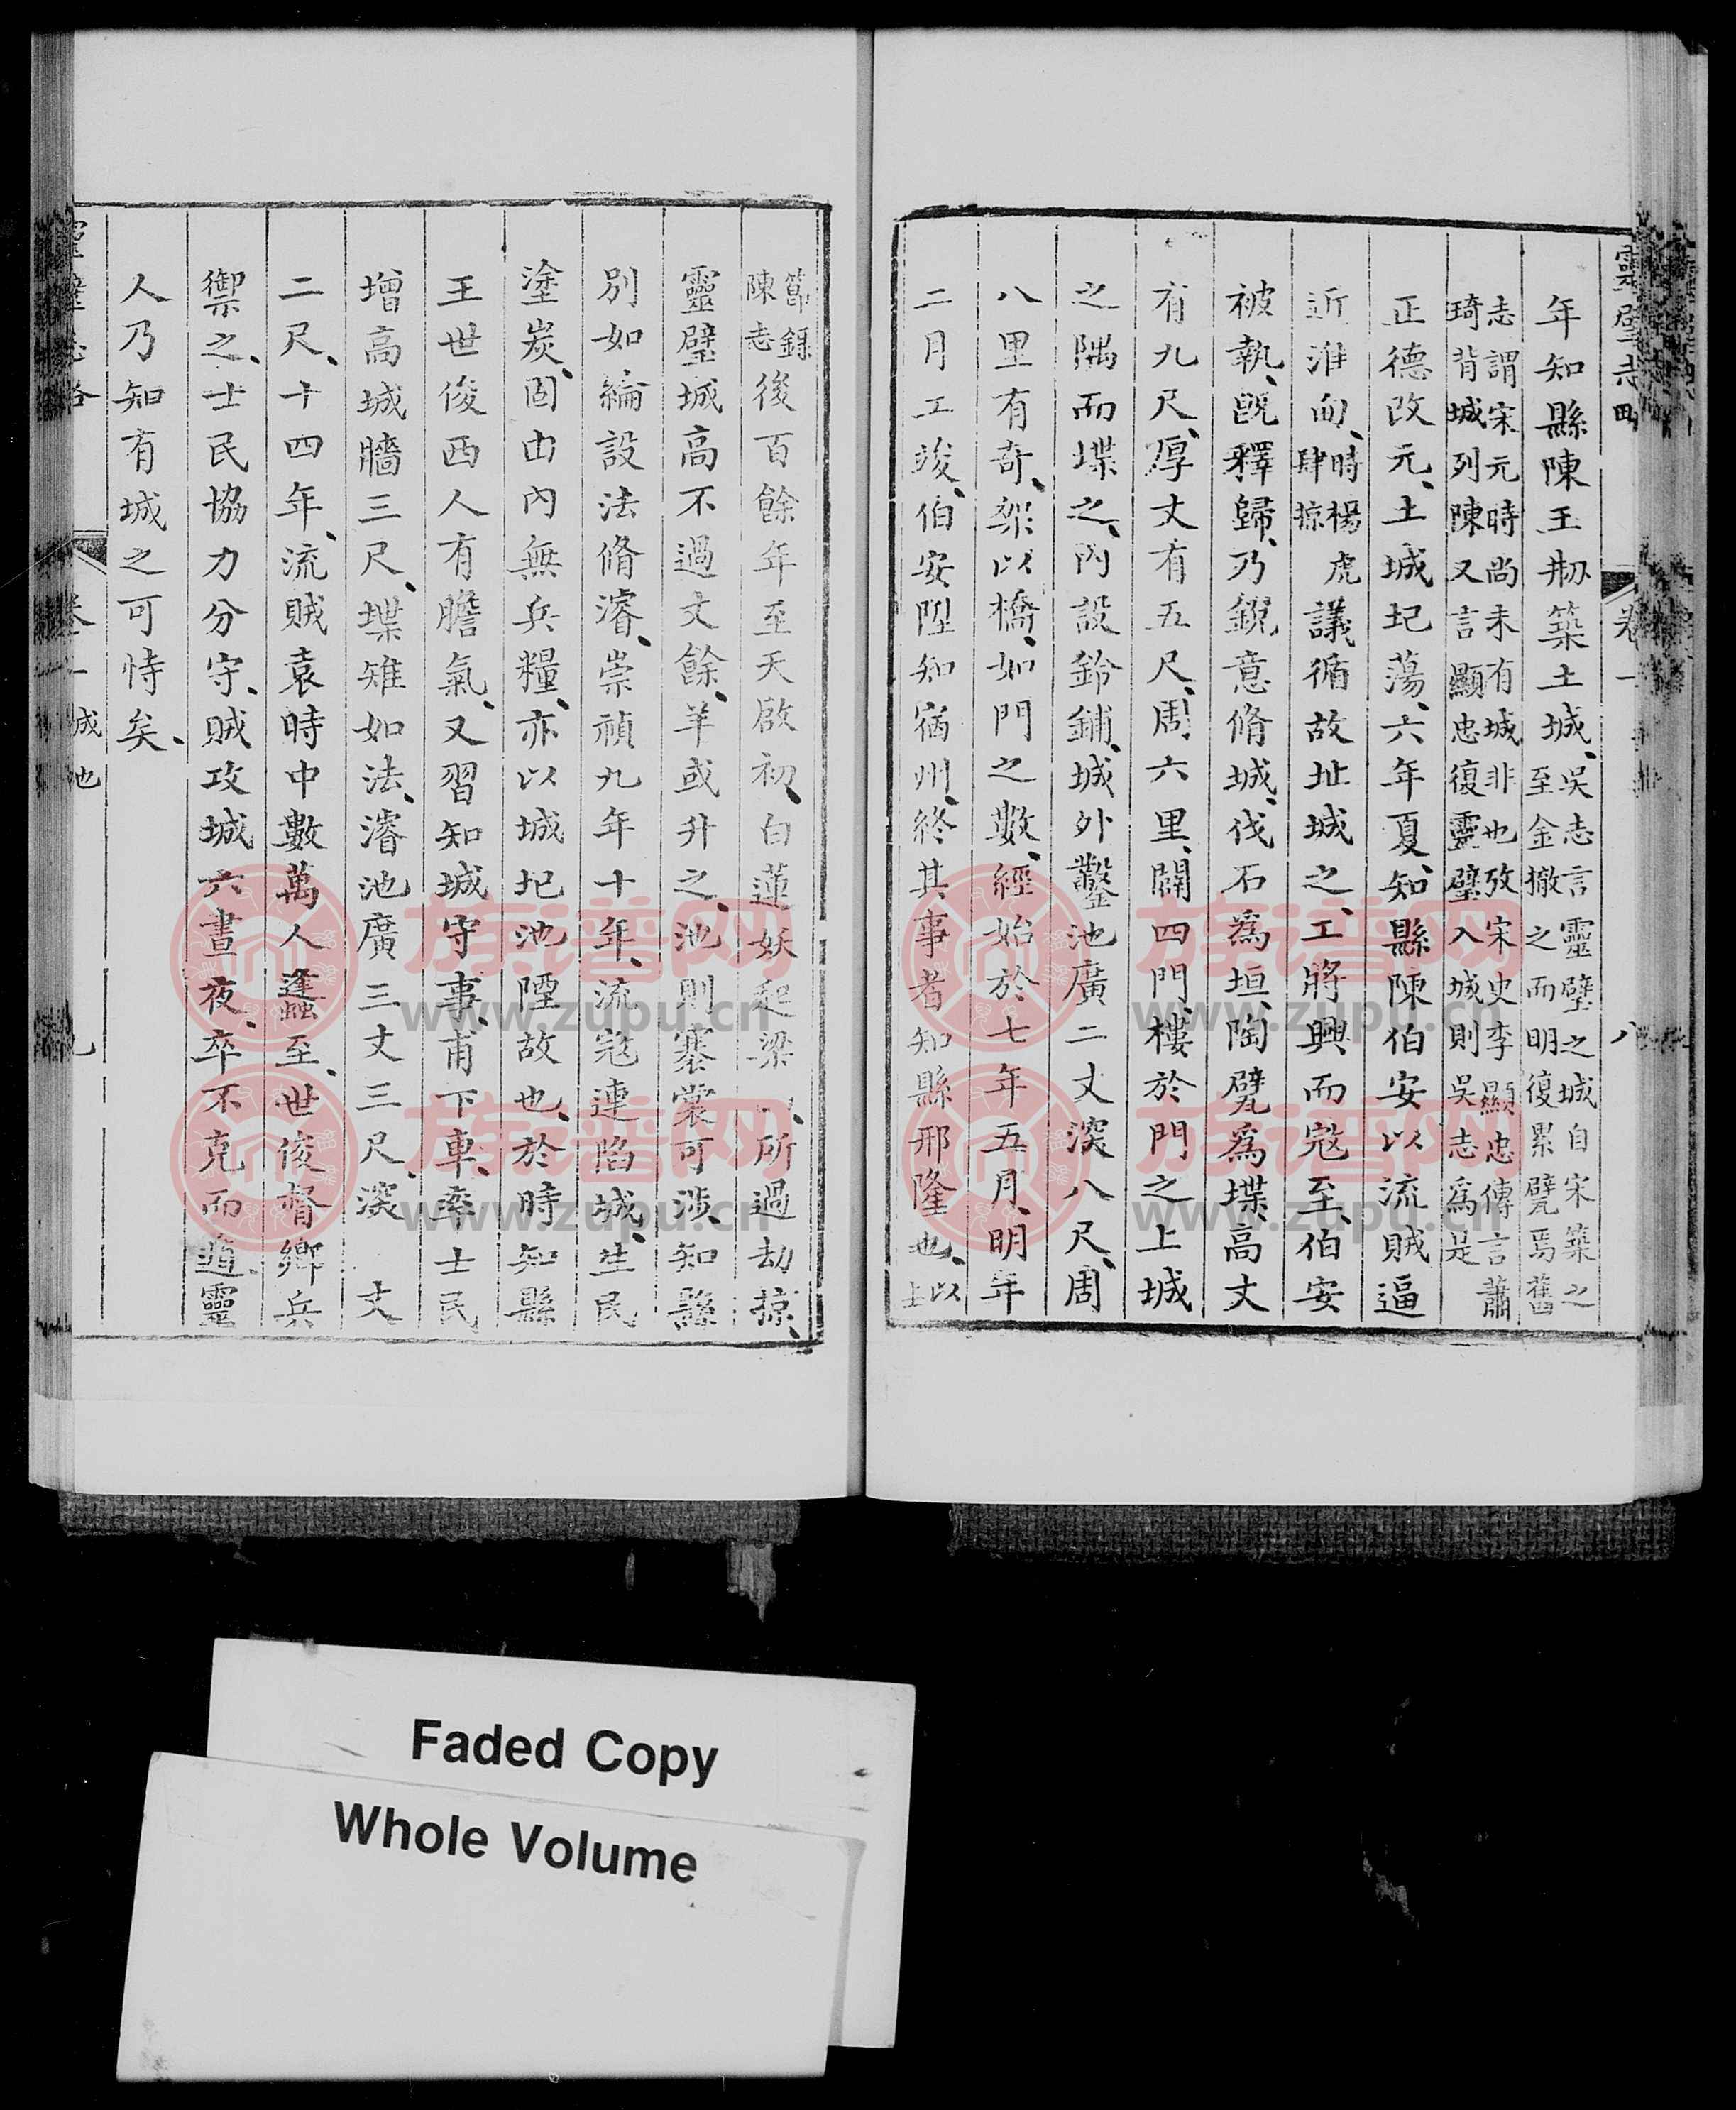 靈璧志略 卷一 八
年知縣陳王刱築土城、吳志言靈璧之城自宋築之至金撤之而明復累甓焉舊
志謂宋元時尚未有城非也攷宋史李顯忠傳言蕭琦背城列陳又言顯忠復靈璧入城則吳志爲是
正德改元、土城圮蕩、六年夏、知縣陳伯安以流賊逼
近淮甸、時楊虎肆掠議循故址城之、工將興而寇至、伯安
被執、旣釋歸、乃銳意脩城、伐石爲垣、陶甓爲堞、高丈
有九尺、厚丈有五尺、周六里、闢四門、樓於門之上城
之隅而堞之、內設鈴鋪、城外鑿池廣二丈深八尺、周
八里有奇、梁以橋、如門之數、經始於七年五月、明年
二月工竣、伯安陞知宿州、終其事者知縣邢隆也、以上
節錄陳志後百餘年至天啟初、白蓮妖起梁、所過劫掠、
靈璧城高不過丈餘、羊或升之、池則褰裳可涉、知縣
別如綸設法脩濬、崇禎九年十年、流寇連陷城、生民
塗炭、固由內無兵糧、亦以城圮池陻故也、於時知縣
王世俊西人有膽氣、又習知城守事、甫下車、率士民
增高城牆三尺、堞雉如法、濬池廣三丈三尺、深 丈
二尺、十四年、流賊袁時中數萬人蠭至、世俊督鄉兵
禦之、士民協力分守、賊攻城六晝夜、卒不克而遁、靈
人乃知有城之可恃矣、
靈璧志略 卷一 城池 九
族谱网
www.zupu.cn
族谱网
www.zupu.cn
族谱网
www.zupu.cn
族谱网
www.zupu.cn
Faded Copy
Whole Volume